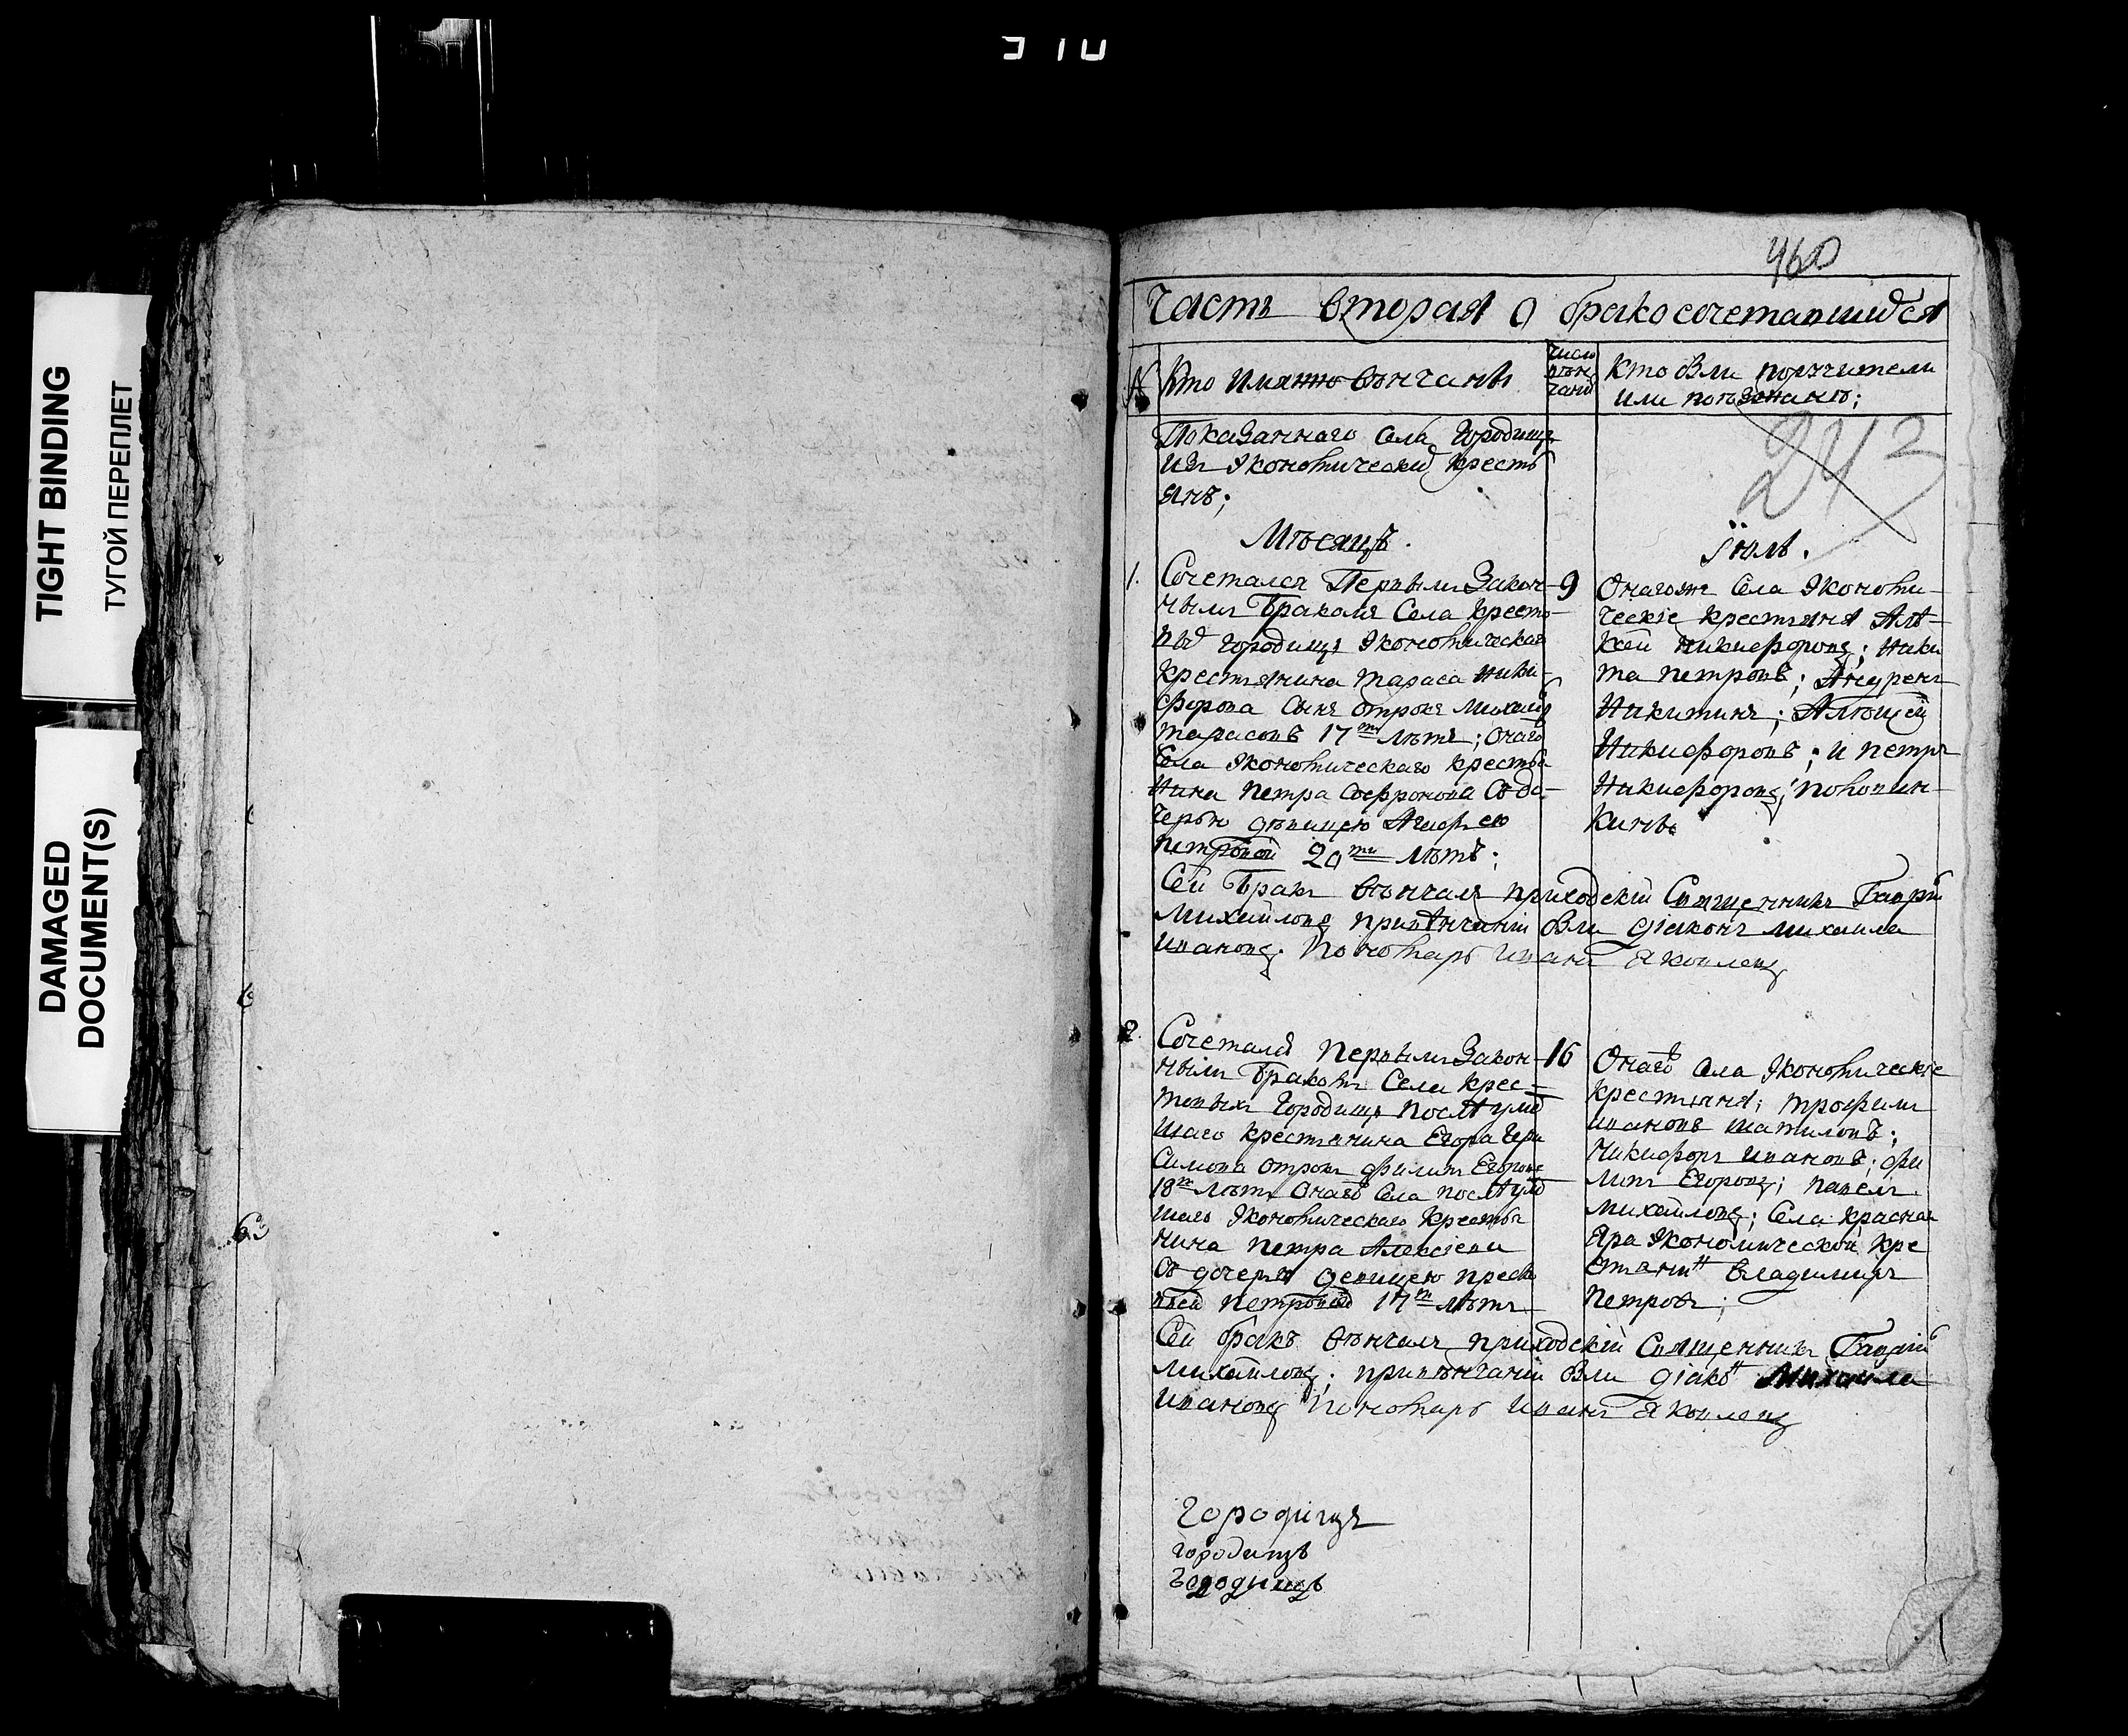 TIGHT BINDING
ТУГОЙ ПЕРЕПЛЕТ
DAMAGED
DOCUMENT(S)
460
Часть вторая о бракосочетавшихся
№ Кто имянно вѣнчаны
число
вѣн
чаній
Кто были поручители
или поѣзжанѣ;
243
Показаннаго села Городищъ
изъ экономическихъ кресть
янъ;
Мѣсяцъ. Іюль.
1.
Сочетался первымъ закон-
нымъ бракомъ села Кресто-
выхъ Городищъ экономическаго
крестьянина Тараса Ники-
форова сынъ отрокъ Михаилъ
Тарасовъ 17ти лѣтъ; онаго
села экономическаго крестья
нина Петра Софронова съ до-
черью дѣвицею Агафьею
Петровой 20ти лѣтъ;
9
Онагожъ села экономи-
ческіе крестьяня Алѣ-
ксѣй Никифоровъ; Ники
та Петровъ;
Никитинъ;
Никифоровъ; и Петръ
Никифоровъ;
Сей бракъ вѣнчалъ приходскій священникъ Гаврилъ
Михайловъ при вѣнчаніи были діаконъ Михаила
Ивановъ. Пономарь Иванъ Яковлевъ
2.
Сочетался первымъ закон-
нымъ бракомъ села Крес-
товыхъ Городищъ послѣ умер
шаго крестьянина Егора Гера
симова отрокъ Филипъ Егоровъ
18ти лѣтъ онаго села послѣ умер
шаго экономическаго крестья
нина Петра Алексіева
съ дочерью девицею Праско
вьей Петровой 17ти лѣтъ
16
Онаго села экономическіе
крестьяня; Трофимъ
Ивановъ Шатиловъ;
Никифоръ Ивановъ; Фи
липъ Егоровъ; Павелъ
Михайловъ; села Краснаго
Яра экономической кре
стьянинъ Владимиръ
Петровъ;
Сей бракъ вѣнчалъ приходскій священникъ Гаврилъ
Михайловъ; при вѣнчаніи были діаконъ Михаила
Ивановъ Пономарь Иванъ Яковлевъ
Городища
Городищъ
Городищъ